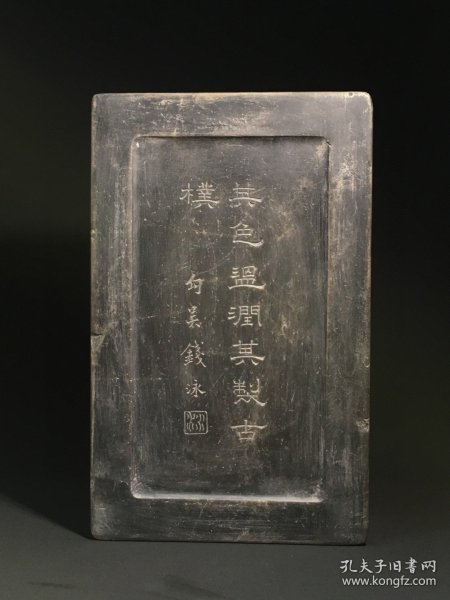 其色溫潤其製古
樸
勾吳錢泳
孔夫子旧书网
www.kongfz.com